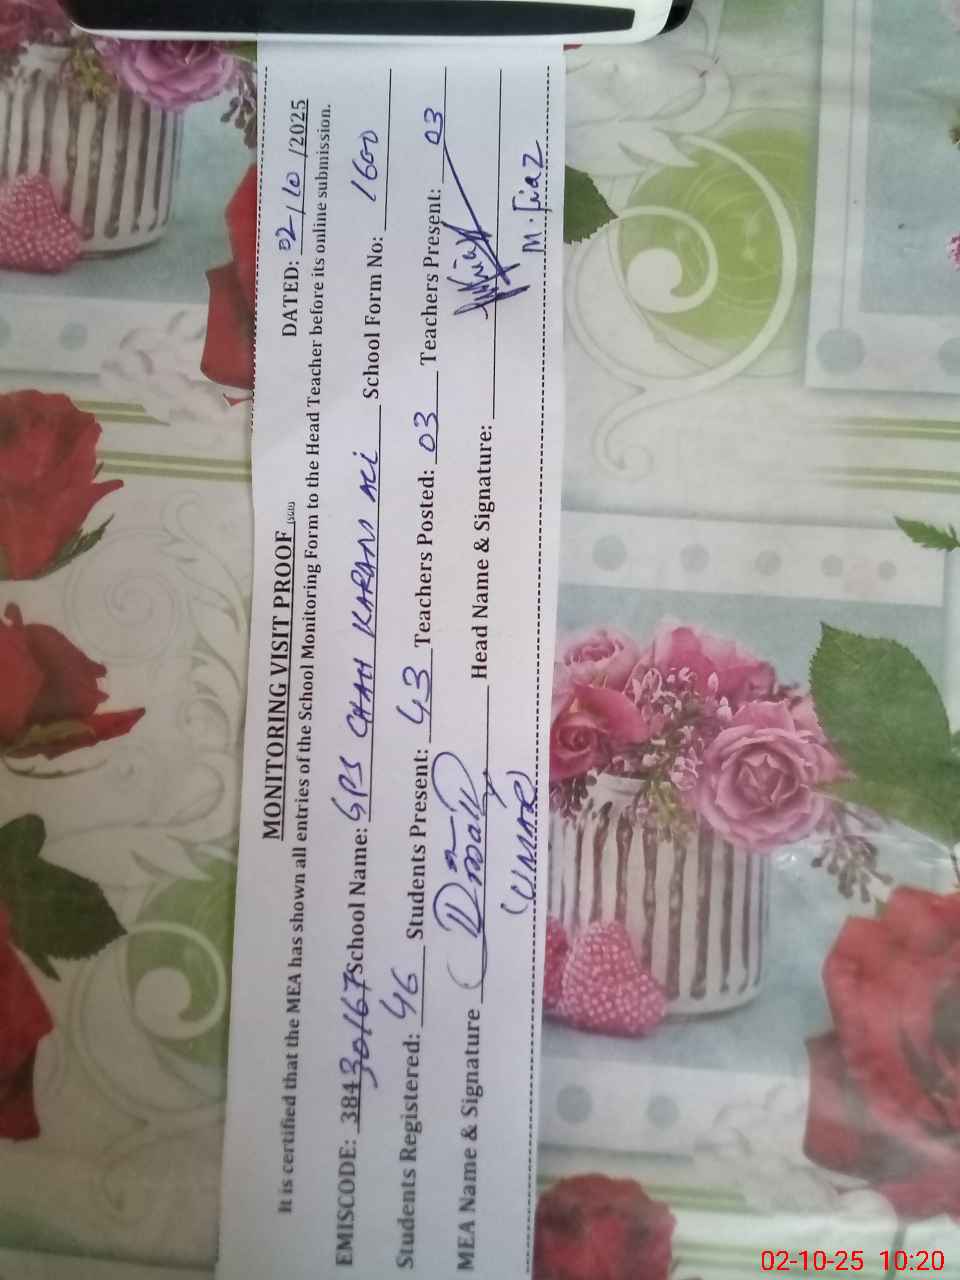 MONITORING VISIT PROOF (SGD) DATED: 02/10/2025
It is certified that the MEA has shown all entries of the School Monitoring Form to the Head Teacher before its online submission.
EMISCODE: 38430167 School Name: GPS CHAH KARAM ALI School Form No: 1600
Students Registered: 46 Students Present: 43 Teachers Posted: 03 Teachers Present: 03
MEA Name & Signature Head Name & Signature:
(UMAR) M. Fiaz
02-10-25 10:20